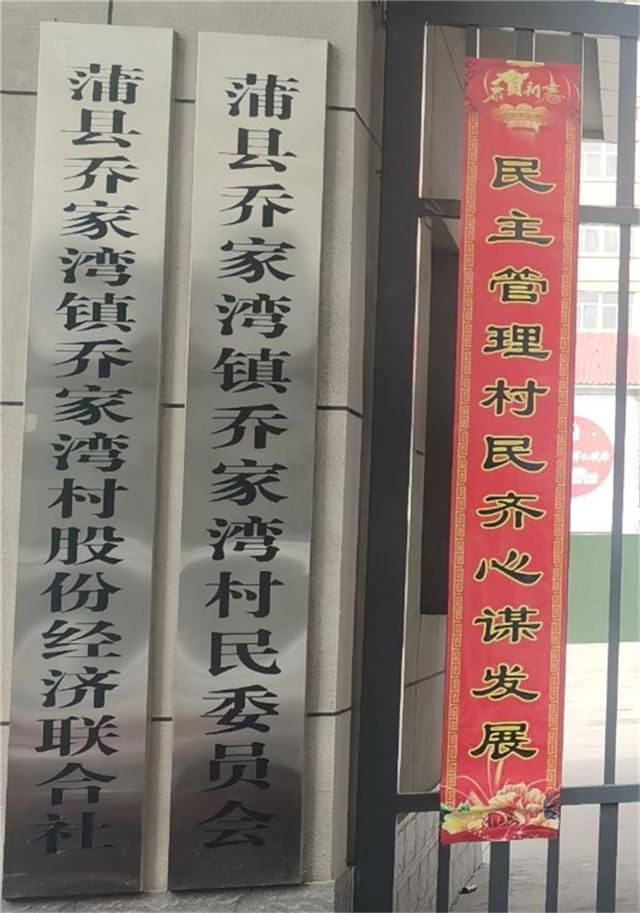 蒲县乔家湾镇乔家湾村股份经济联合社
蒲县乔家湾镇乔家湾村民委员会
恭贺新春
民主管理村民齐心谋发展